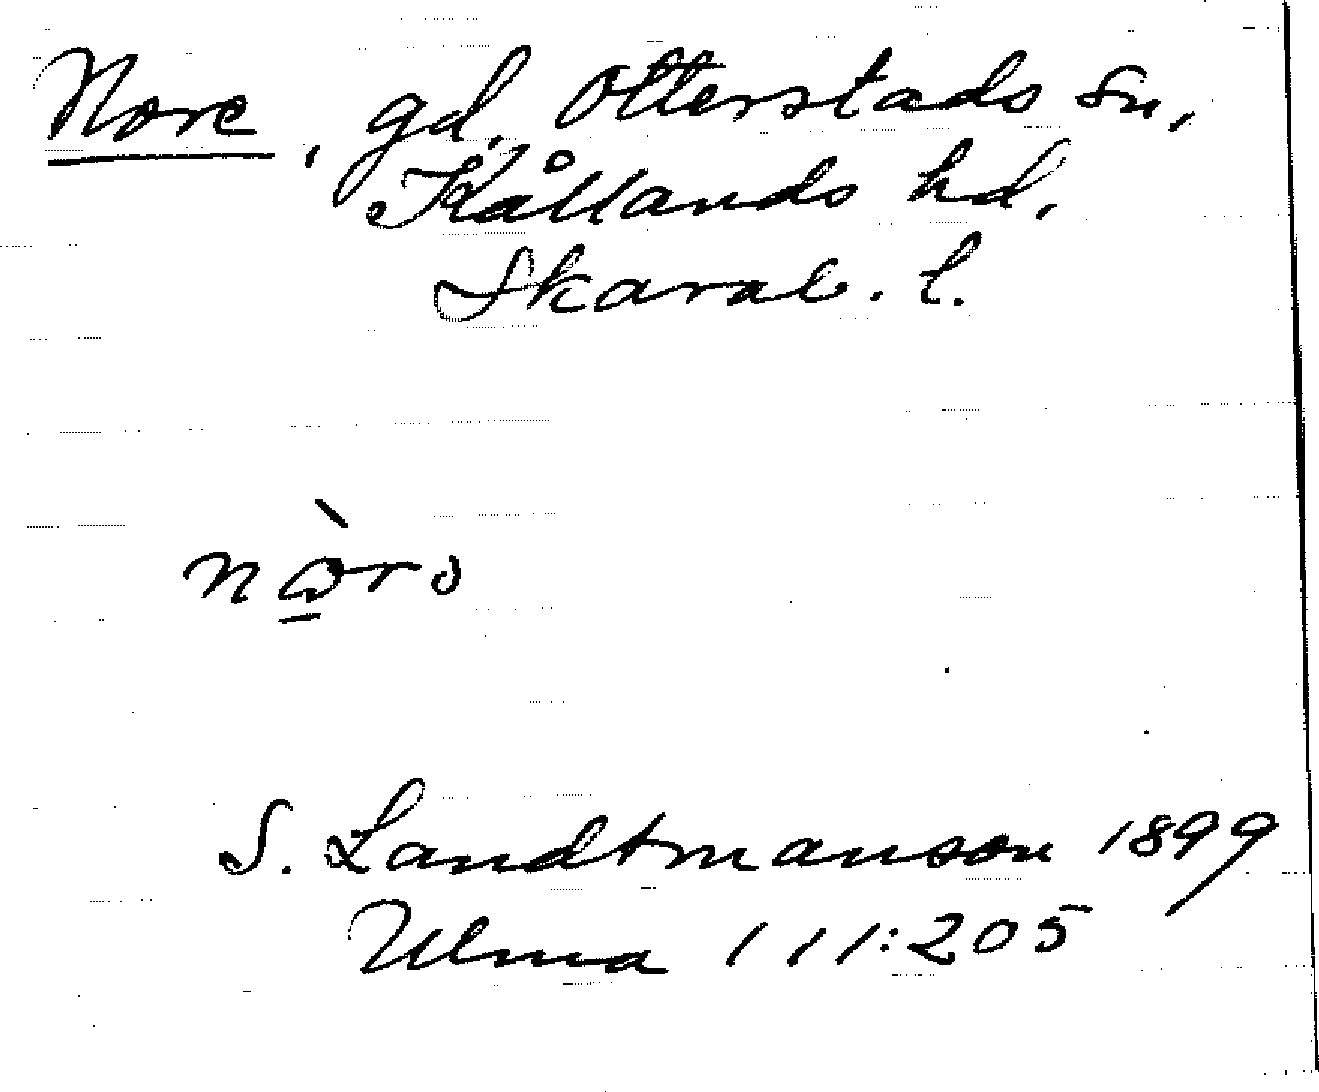 Nore, gd, Otterstads sn,
Kållands hd,
Skarab. l.
S. Landtmanson 1899
Ulma 111:205